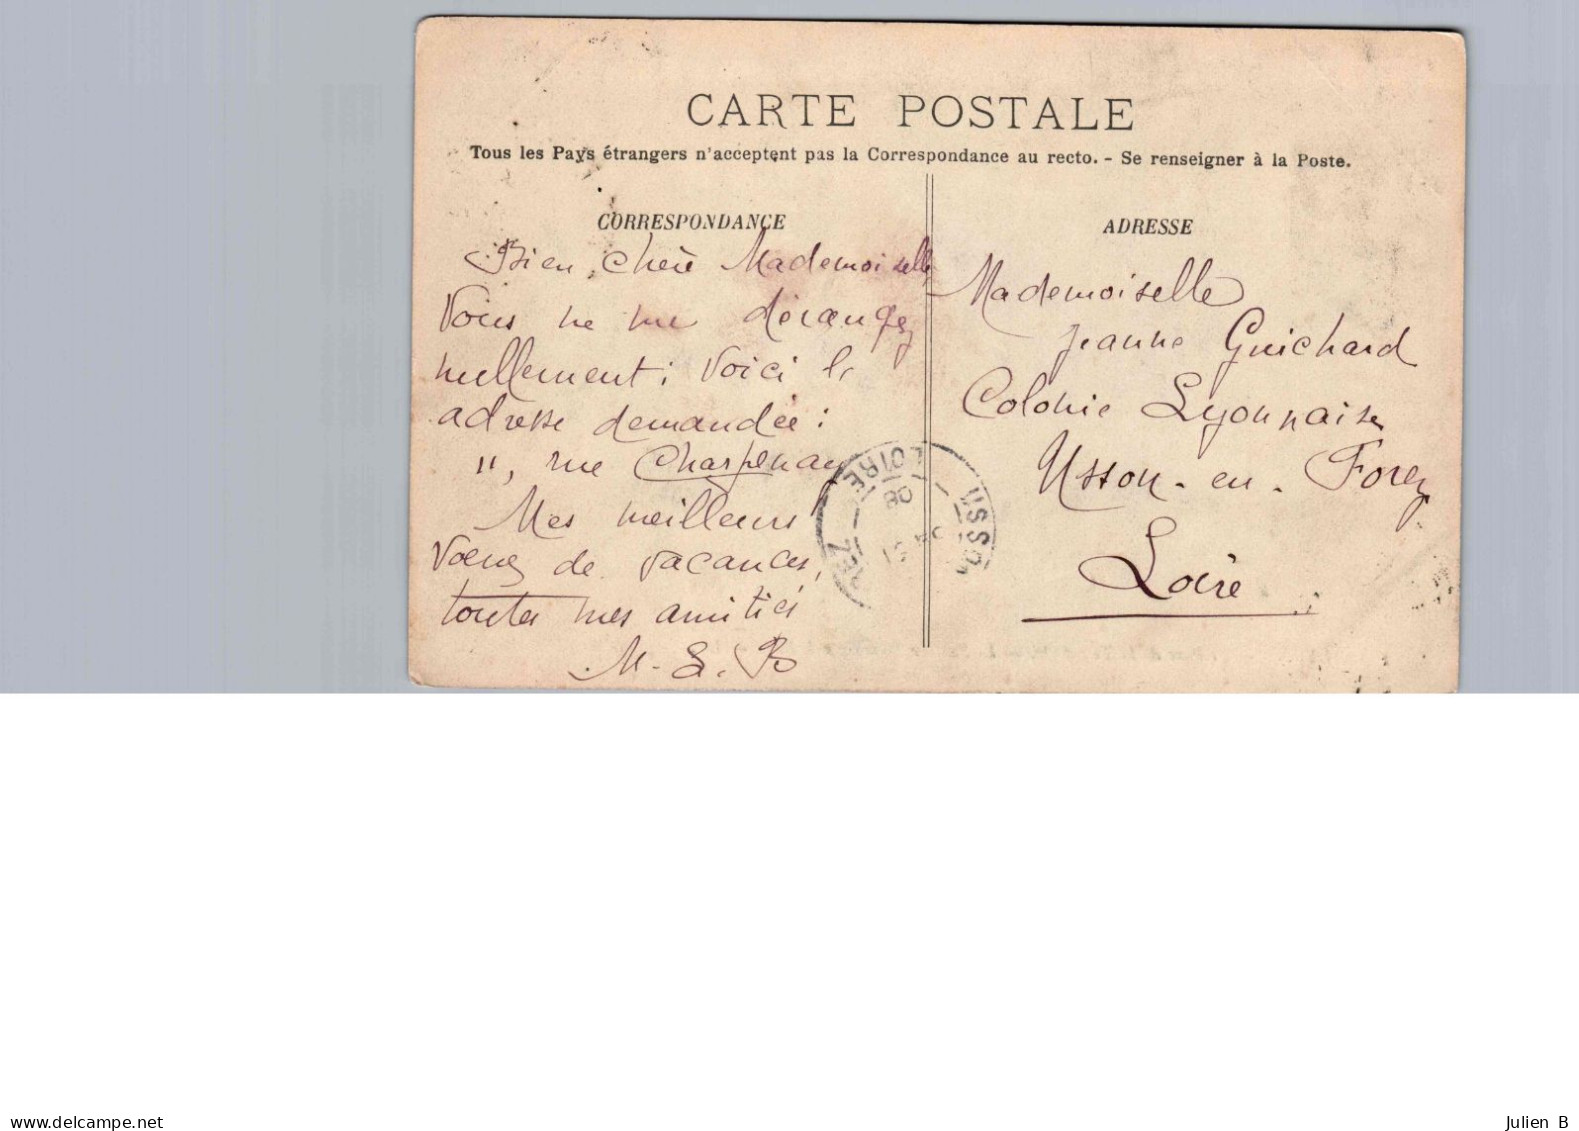 CARTE POSTALE
Tous les Pays étrangers n'acceptent pas la Correspondance au recto. - Se renseigner à la Poste.
CORRESPONDANCE
Bien chère Mademoiselle,
Vous ne me dérangez
nullement ; voici l'
adresse demandée :
11, rue Charpenay
Mes meilleurs
vœux de vacances,
toutes mes amitiés
M. L. B
ADRESSE
Mademoiselle
Jeanne Guichard
Colonie Lyonnaise
Usson-en-Forez
Loire
LOIRE
08
www.delcampe.net
Julien B